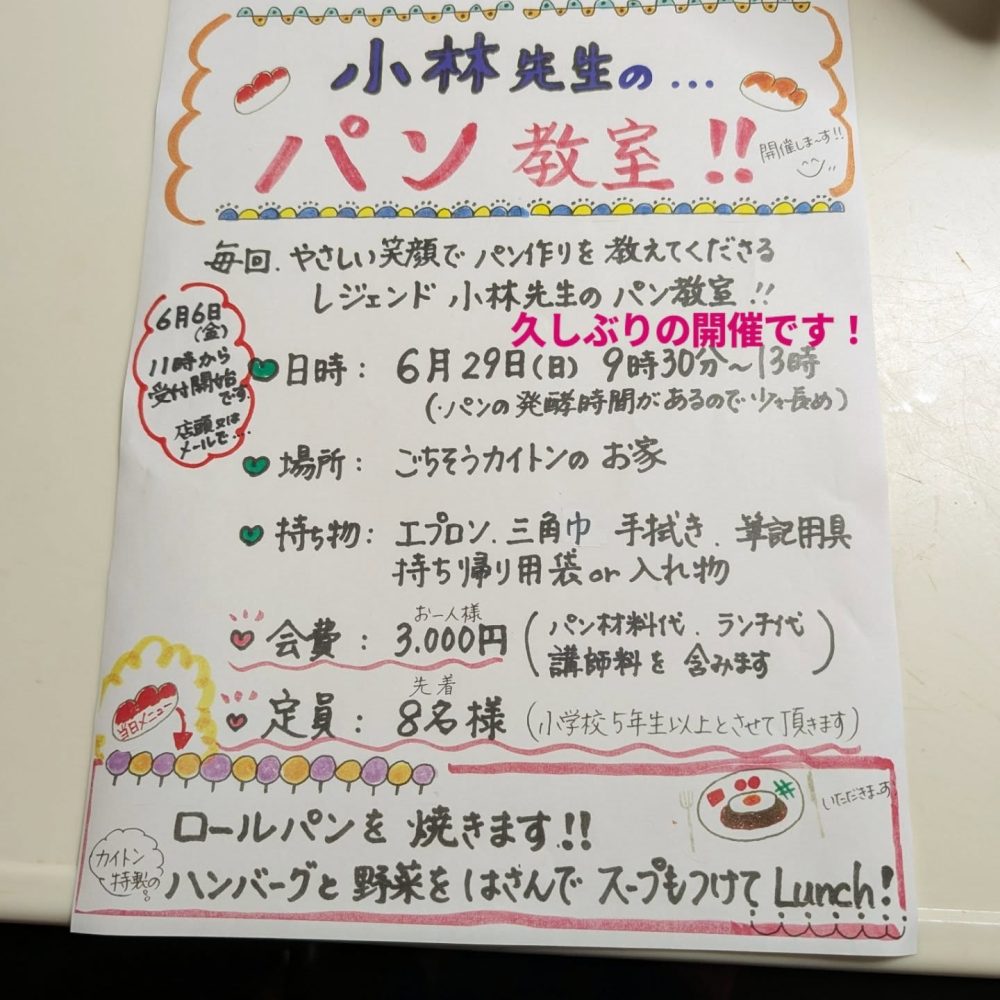 小林先生の...
パン教室!!
開催しま~す!!
毎回、やさしい笑顔でパン作りを教えてくださる
レジェンド 小林先生のパン教室!!
久しぶりの開催です！
6月6日
(金)
11時から
受付開始
です
店頭又は
メールで...
日時: 6月29日(日) 9時30分~13時
(パンの発酵時間があるので少々長め)
場所: ごちそうカイトンのお家
持ち物: エプロン、三角巾 手拭き、筆記用具
持ち帰り用袋or入れ物
会費: お一人様 3.000円 (パン材料代、ランチ代
講師料を含みます)
定員: 先着 8名様 (小学校5年生以上とさせて頂きます)
当日メニュー
ロールパンを焼きます!!
いただきま~す
カイトン
特製の
ハンバーグと野菜をはさんでスープもつけてLunch!